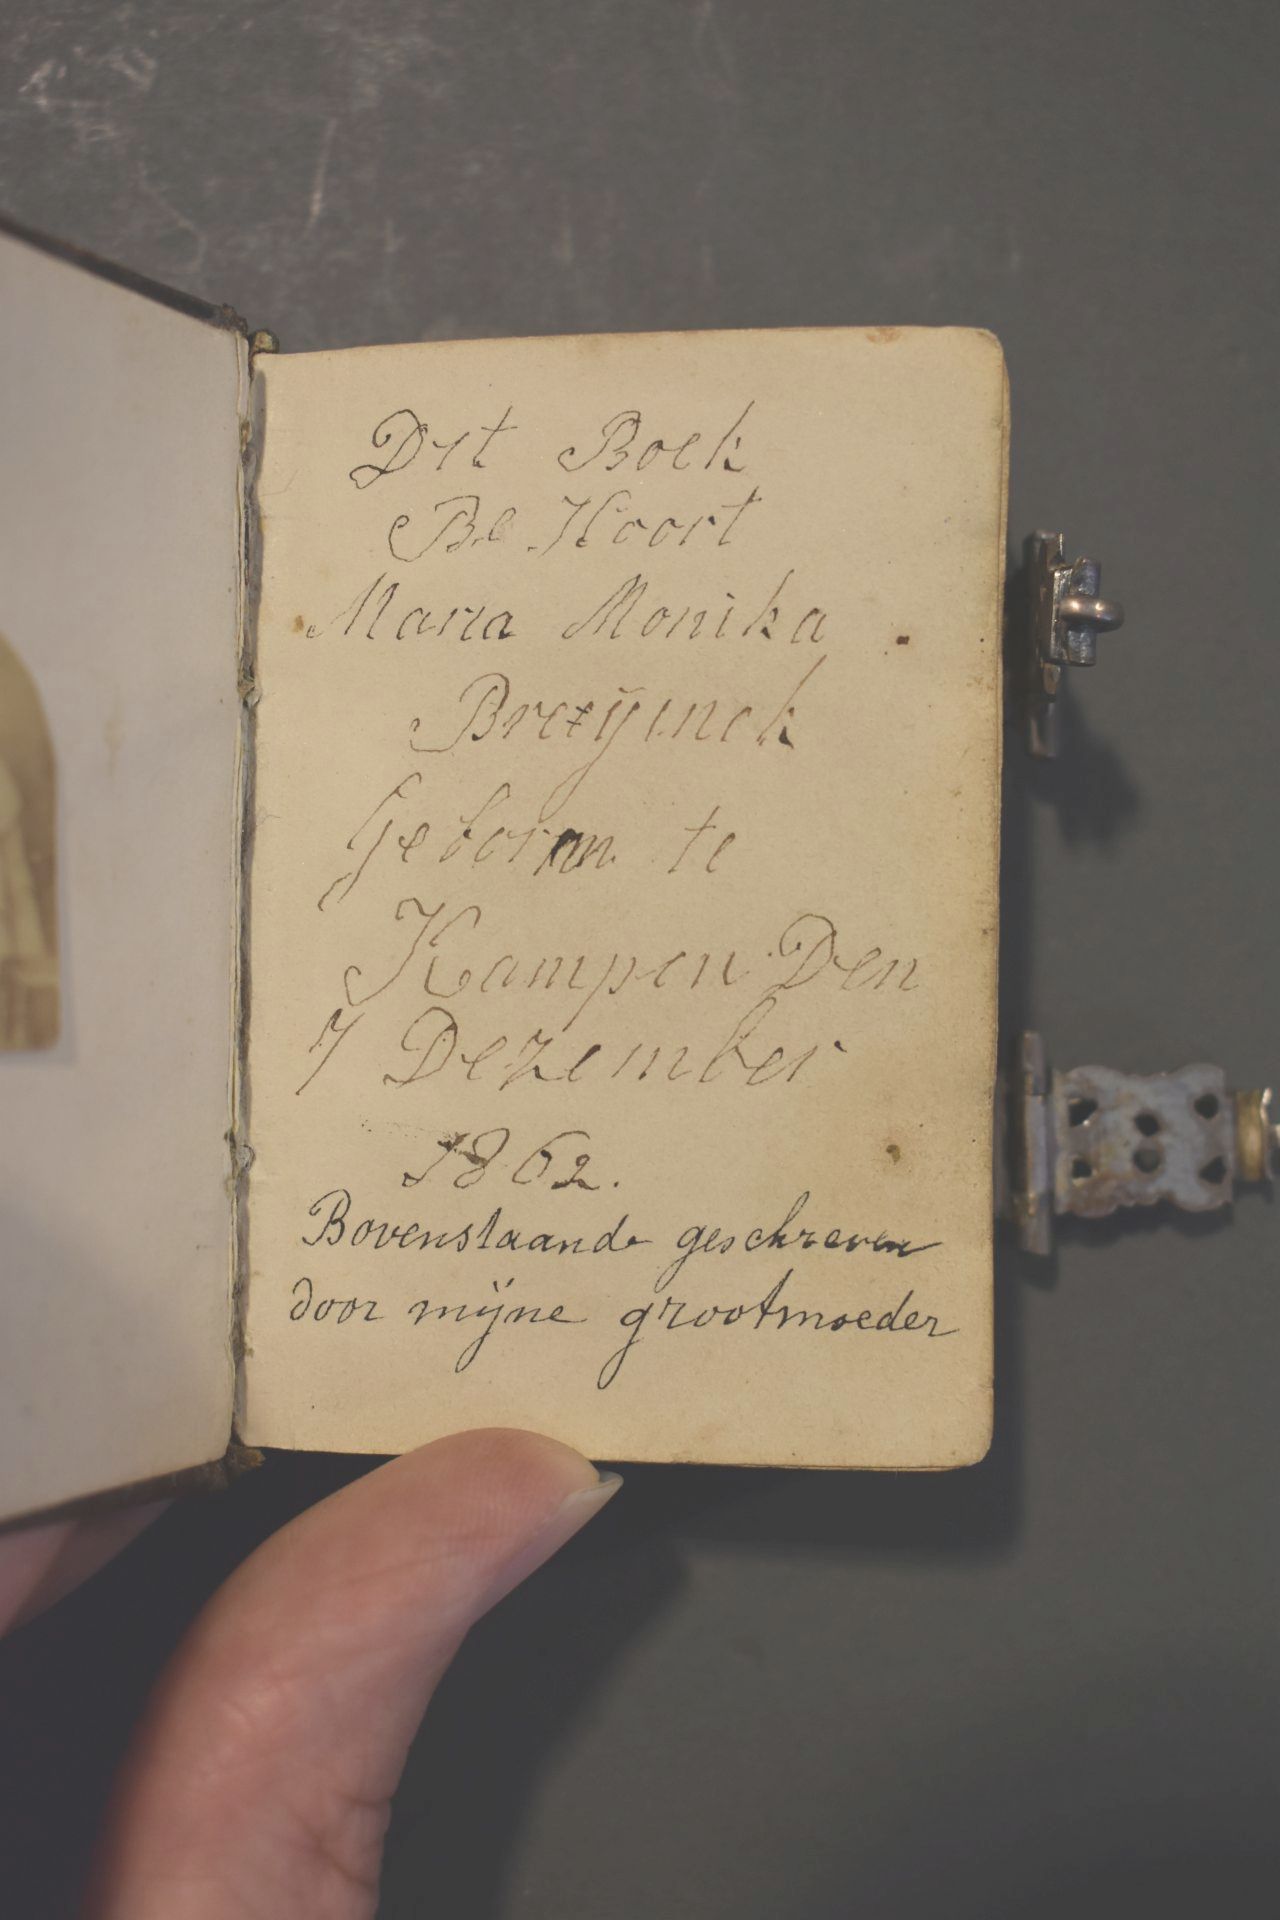 Dit Boek
Be Hoort
Maria Monika
Geboren te
Kampen Den
7 Dezember
1862.
Bovenstaande geschreven
door mijne grootmoeder